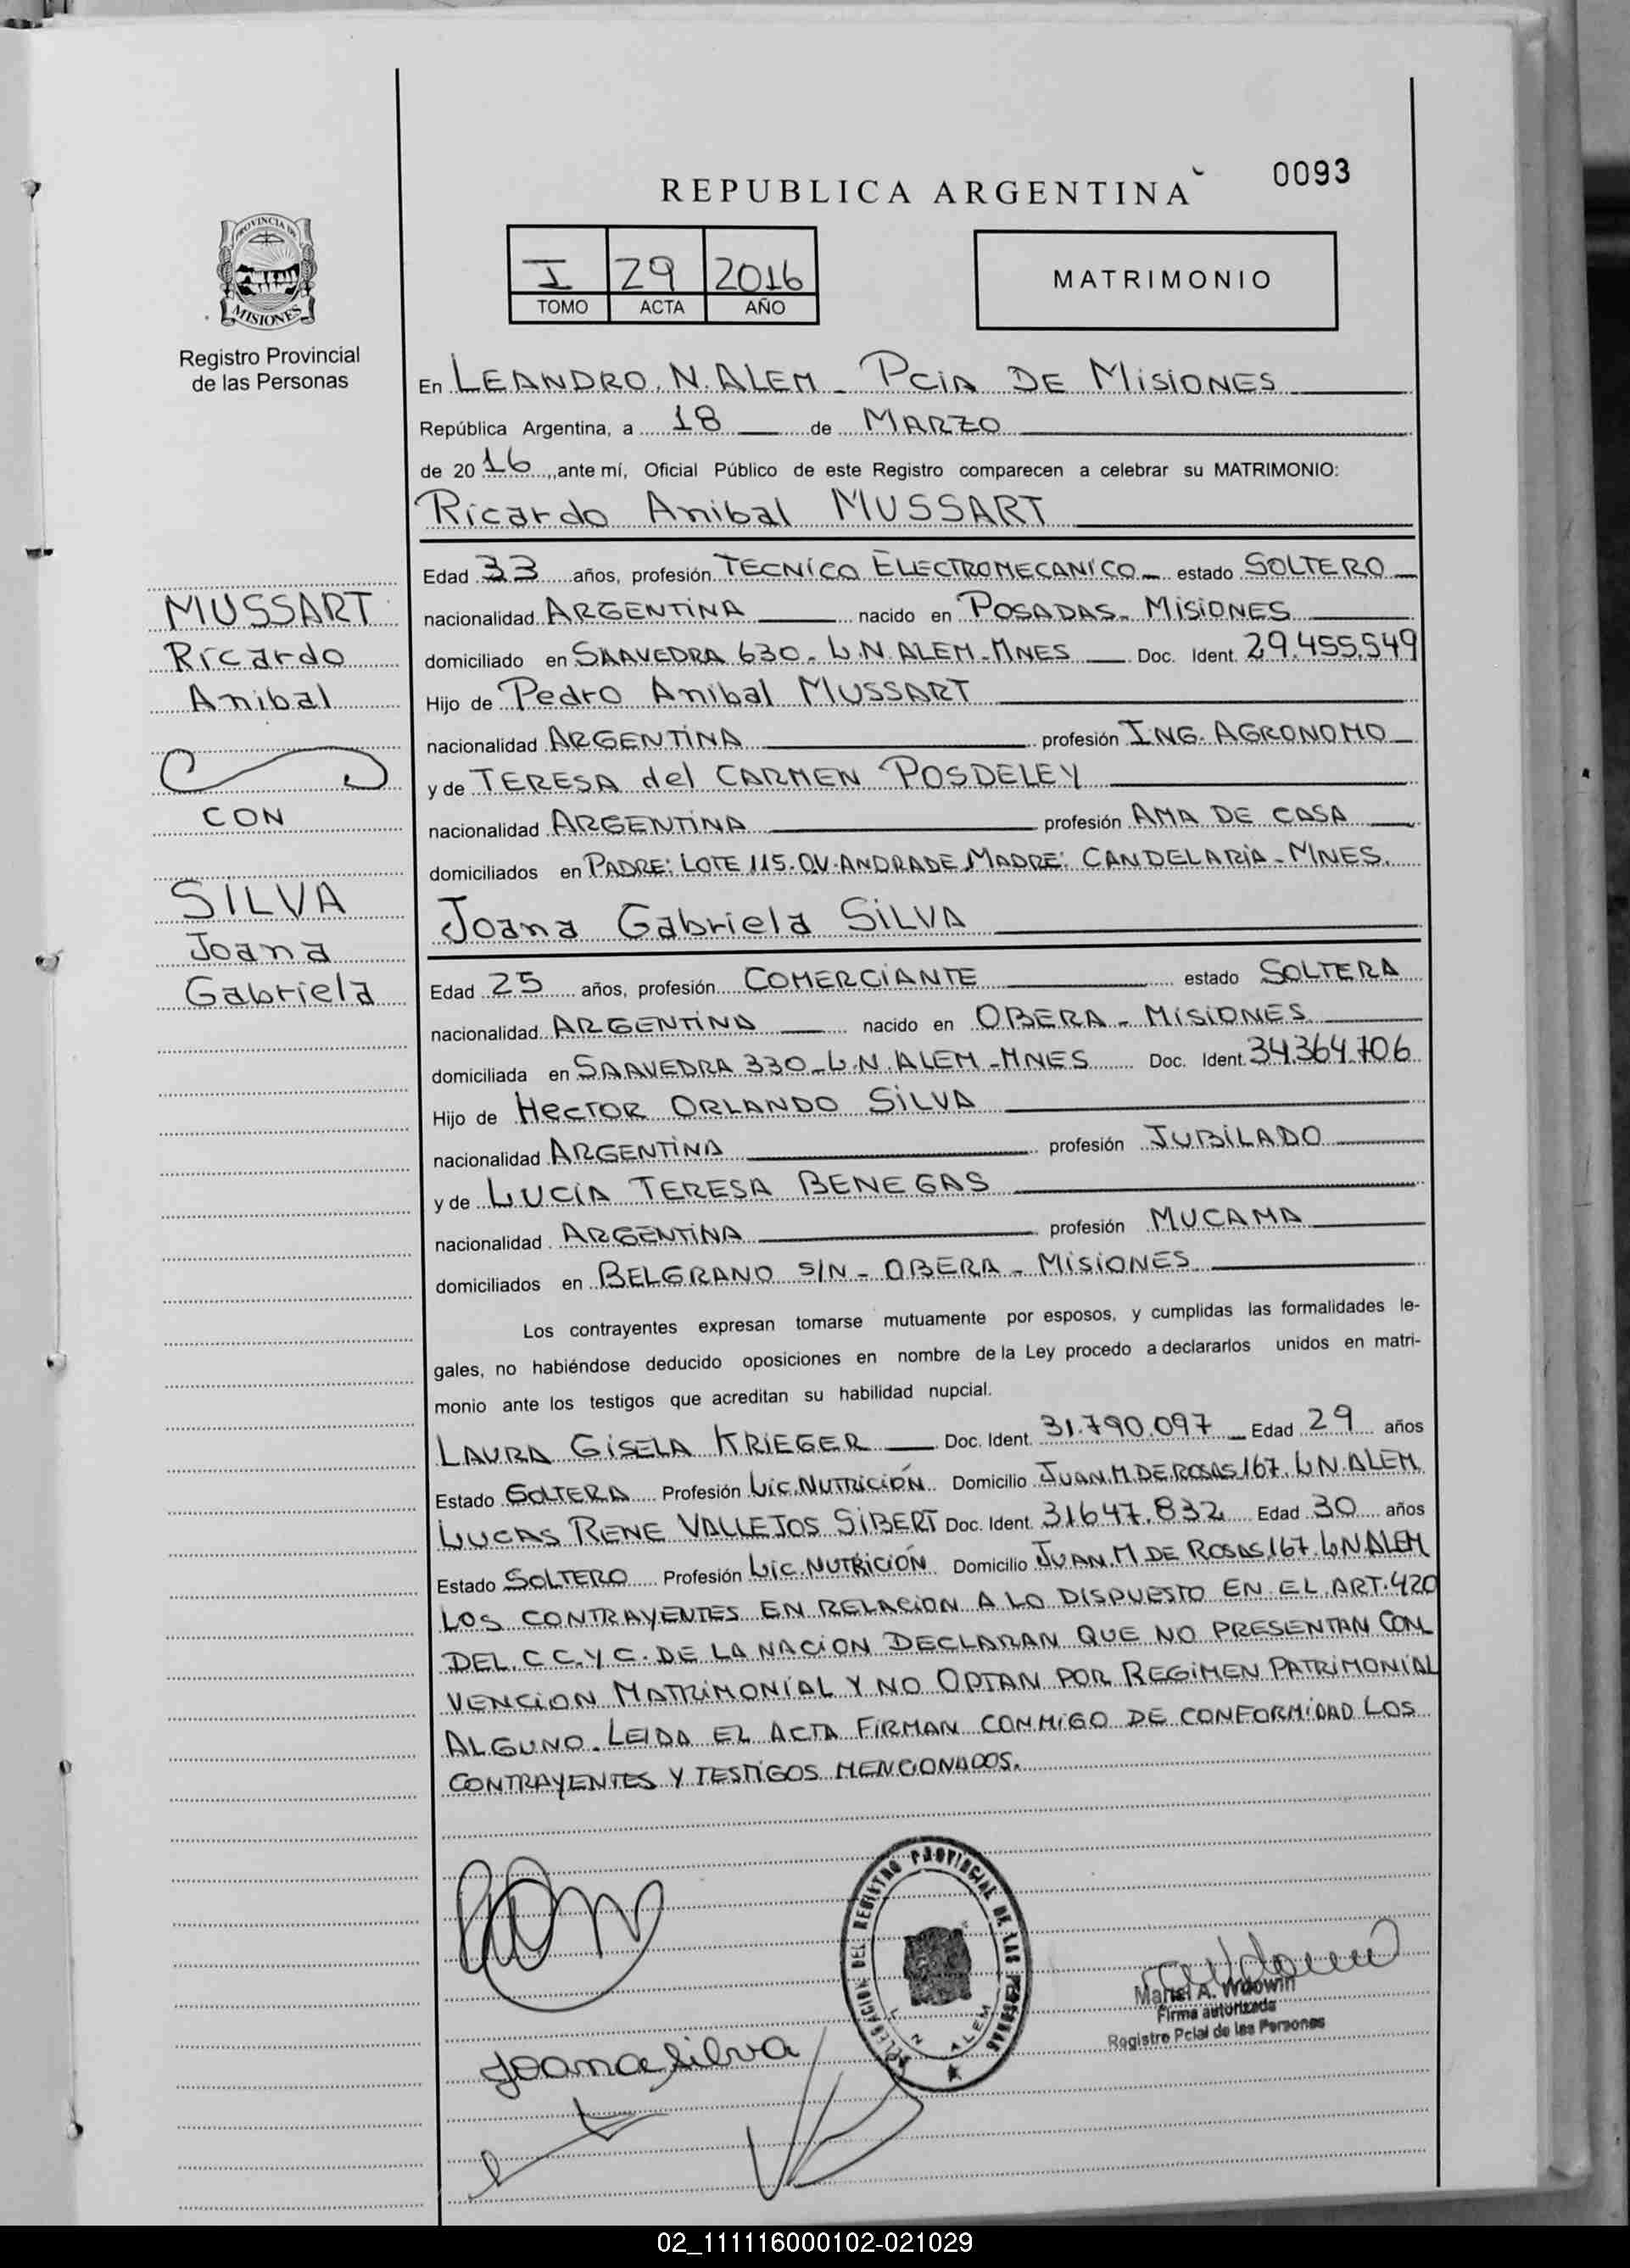 0093
REPUBLICA ARGENTINA
PROVINCIA DE
MISIONES
Registro Provincial
de las Personas
I 29 2016
TOMO ACTA AÑO
MATRIMONIO
En LEANDRO. N. ALEM - PCIA DE MISIONES
República Argentina, a 18 de MARZO
de 20 16, ante mí, Oficial Público de este Registro comparecen a celebrar su MATRIMONIO:
Ricardo Anibal MUSSART
Edad 33 años, profesión TECNICO ELECTROMECANICO - estado SOLTERO
nacionalidad ARGENTINA nacido en POSADAS - MISIONES
domiciliado en SAAVEDRA 630 - L.N. ALEM - MNES Doc. Ident. 29.455.549
Hijo de Pedro Anibal MUSSART
nacionalidad ARGENTINA profesión ING. AGRONOMO
y de TERESA del CARMEN POSDELEY
nacionalidad ARGENTINA profesión AMA DE CASA
domiciliados en PADRE: LOTE 115. O.V. ANDRADE MADRE: CANDELARIA - MNES.
MUSSART
Ricardo
Anibal
CON
SILVA
Joana
Gabriela
Joana Gabriela SILVA
Edad 25 años, profesión COMERCIANTE estado SOLTERA
nacionalidad ARGENTINA nacido en OBERA - MISIONES
domiciliada en SAAVEDRA 330 - L.N. ALEM - MNES Doc. Ident. 34.364.706
Hijo de HECTOR ORLANDO SILVA
nacionalidad ARGENTINA profesión JUBILADO
y de LUCIA TERESA BENEGAS
nacionalidad ARGENTINA profesión MUCAMA
domiciliados en BELGRANO S/N - OBERA - MISIONES
Los contrayentes expresan tomarse mutuamente por esposos, y cumplidas las formalidades le-
gales, no habiéndose deducido oposiciones en nombre de la Ley procedo a declararlos unidos en matri-
monio ante los testigos que acreditan su habilidad nupcial.
LAURA GISELA KRIEGER Doc. Ident. 31.790.097 Edad 29 años
Estado SOLTERA Profesión LIC. NUTRICIÓN Domicilio JUAN M. DE ROSAS 167. L N. ALEM
LUCAS RENE VALLEJOS SIBERT Doc. Ident. 31647.832 Edad 30 años
Estado SOLTERO Profesión LIC. NUTRICIÓN Domicilio JUAN M DE ROSAS 167 L N ALEM
LOS CONTRAYENTES EN RELACION A LO DISPUESTO EN EL ART. 420
DEL C C. Y C. DE LA NACION DECLARAN QUE NO PRESENTAN CON
VENCION MATRIMONIAL Y NO OPTAN POR REGIMEN PATRIMONIAL
ALGUNO. LEIDA EL ACTA FIRMAN CONMIGO DE CONFORMIDAD LOS
CONTRAYENTES Y TESTIGOS MENCIONADOS.
DELEGACION DEL REGISTRO PROVINCIAL DE LAS PERSONAS
L N ALEM
A. Wdowin
Firma autorizada
Registro Pcial de las Personas
Joana Silva
02_111116000102-021029